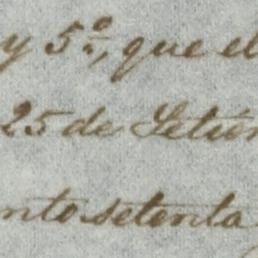 y 5.º, que el
25 de Setiem
nto setenta